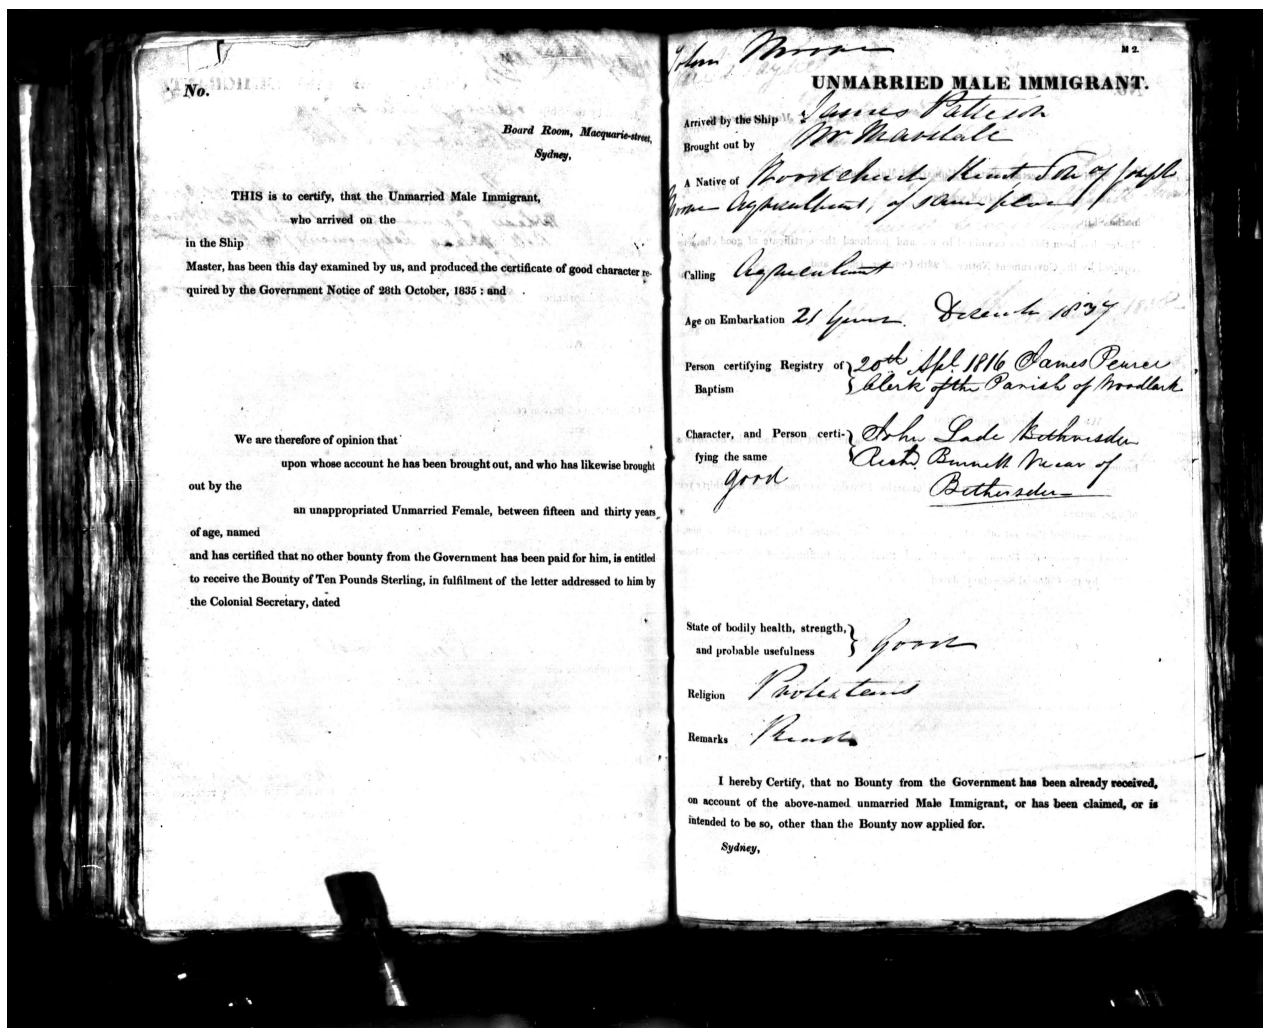 No.
Board Room, Macquarie-street,
Sydney,
THIS is to certify, that the Unmarried Male Immigrant,
who arrived on the
in the Ship
Master, has been this day examined by us, and produced the certificate of good character re-
quired by the Government Notice of 28th October, 1835 : and
We are therefore of opinion that
upon whose account he has been brought out, and who has likewise brought
out by the
an unappropriated Unmarried Female, between fifteen and thirty years
of age, named
and has certified that no other bounty from the Government has been paid for him, is entitled
to receive the Bounty of Ten Pounds Sterling, in fulfilment of the letter addressed to him by
the Colonial Secretary, dated
John Moore
M 2.
UNMARRIED MALE IMMIGRANT.
Arrived by the Ship James Pattison
Brought out by Mr Marsdale
A Native of Woodchurch, Kent Son of Joseph
Moore Agriculturist, of same place
Calling Agriculturist
Age on Embarkation 21 Years. December 1837
Person certifying Registry of Baptism 20th Apl. 1816 James Pearce
Clerk of the Parish of
Character, and Person certi-
fying the same John Lade Bethersden
good Richd. Burnett Vicar of
Bethersden
State of bodily health, strength,
and probable usefulness Good
Religion Protestant
Remarks Reads
I hereby Certify, that no Bounty from the Government has been already received,
on account of the above-named unmarried Male Immigrant, or has been claimed, or is
intended to be so, other than the Bounty now applied for.
Sydney,